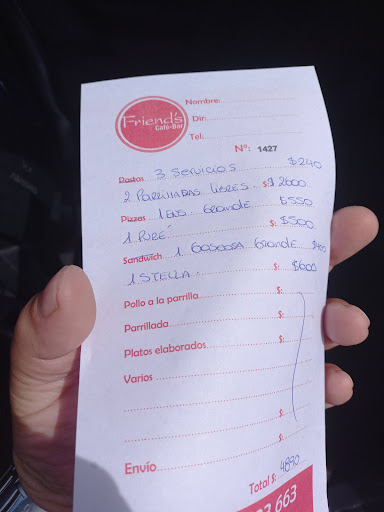 Friend's
Café-Bar
Nombre:
Dir:
Tel:
N°: 1427
Pastas 3 Servicios $240
2 Parrilladas libres $: $2600
Pizzas 1 Ens. Grande $550
1 Puré $: $500
Sandwich 1 Gaseosa Grande $400
1 Stella $: $600
Pollo a la parrilla $:
Parrillada $:
Platos elaborados $:
Varios
$:
Envío $:
Total $: 4890
663